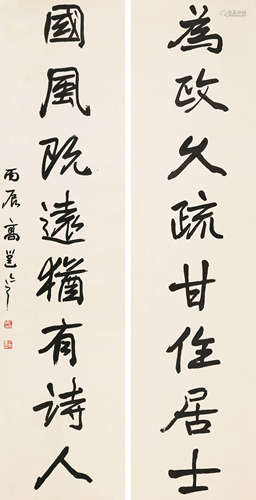 為政久疏甘住居士
國風既遠猶有诗人
丙辰高邕之